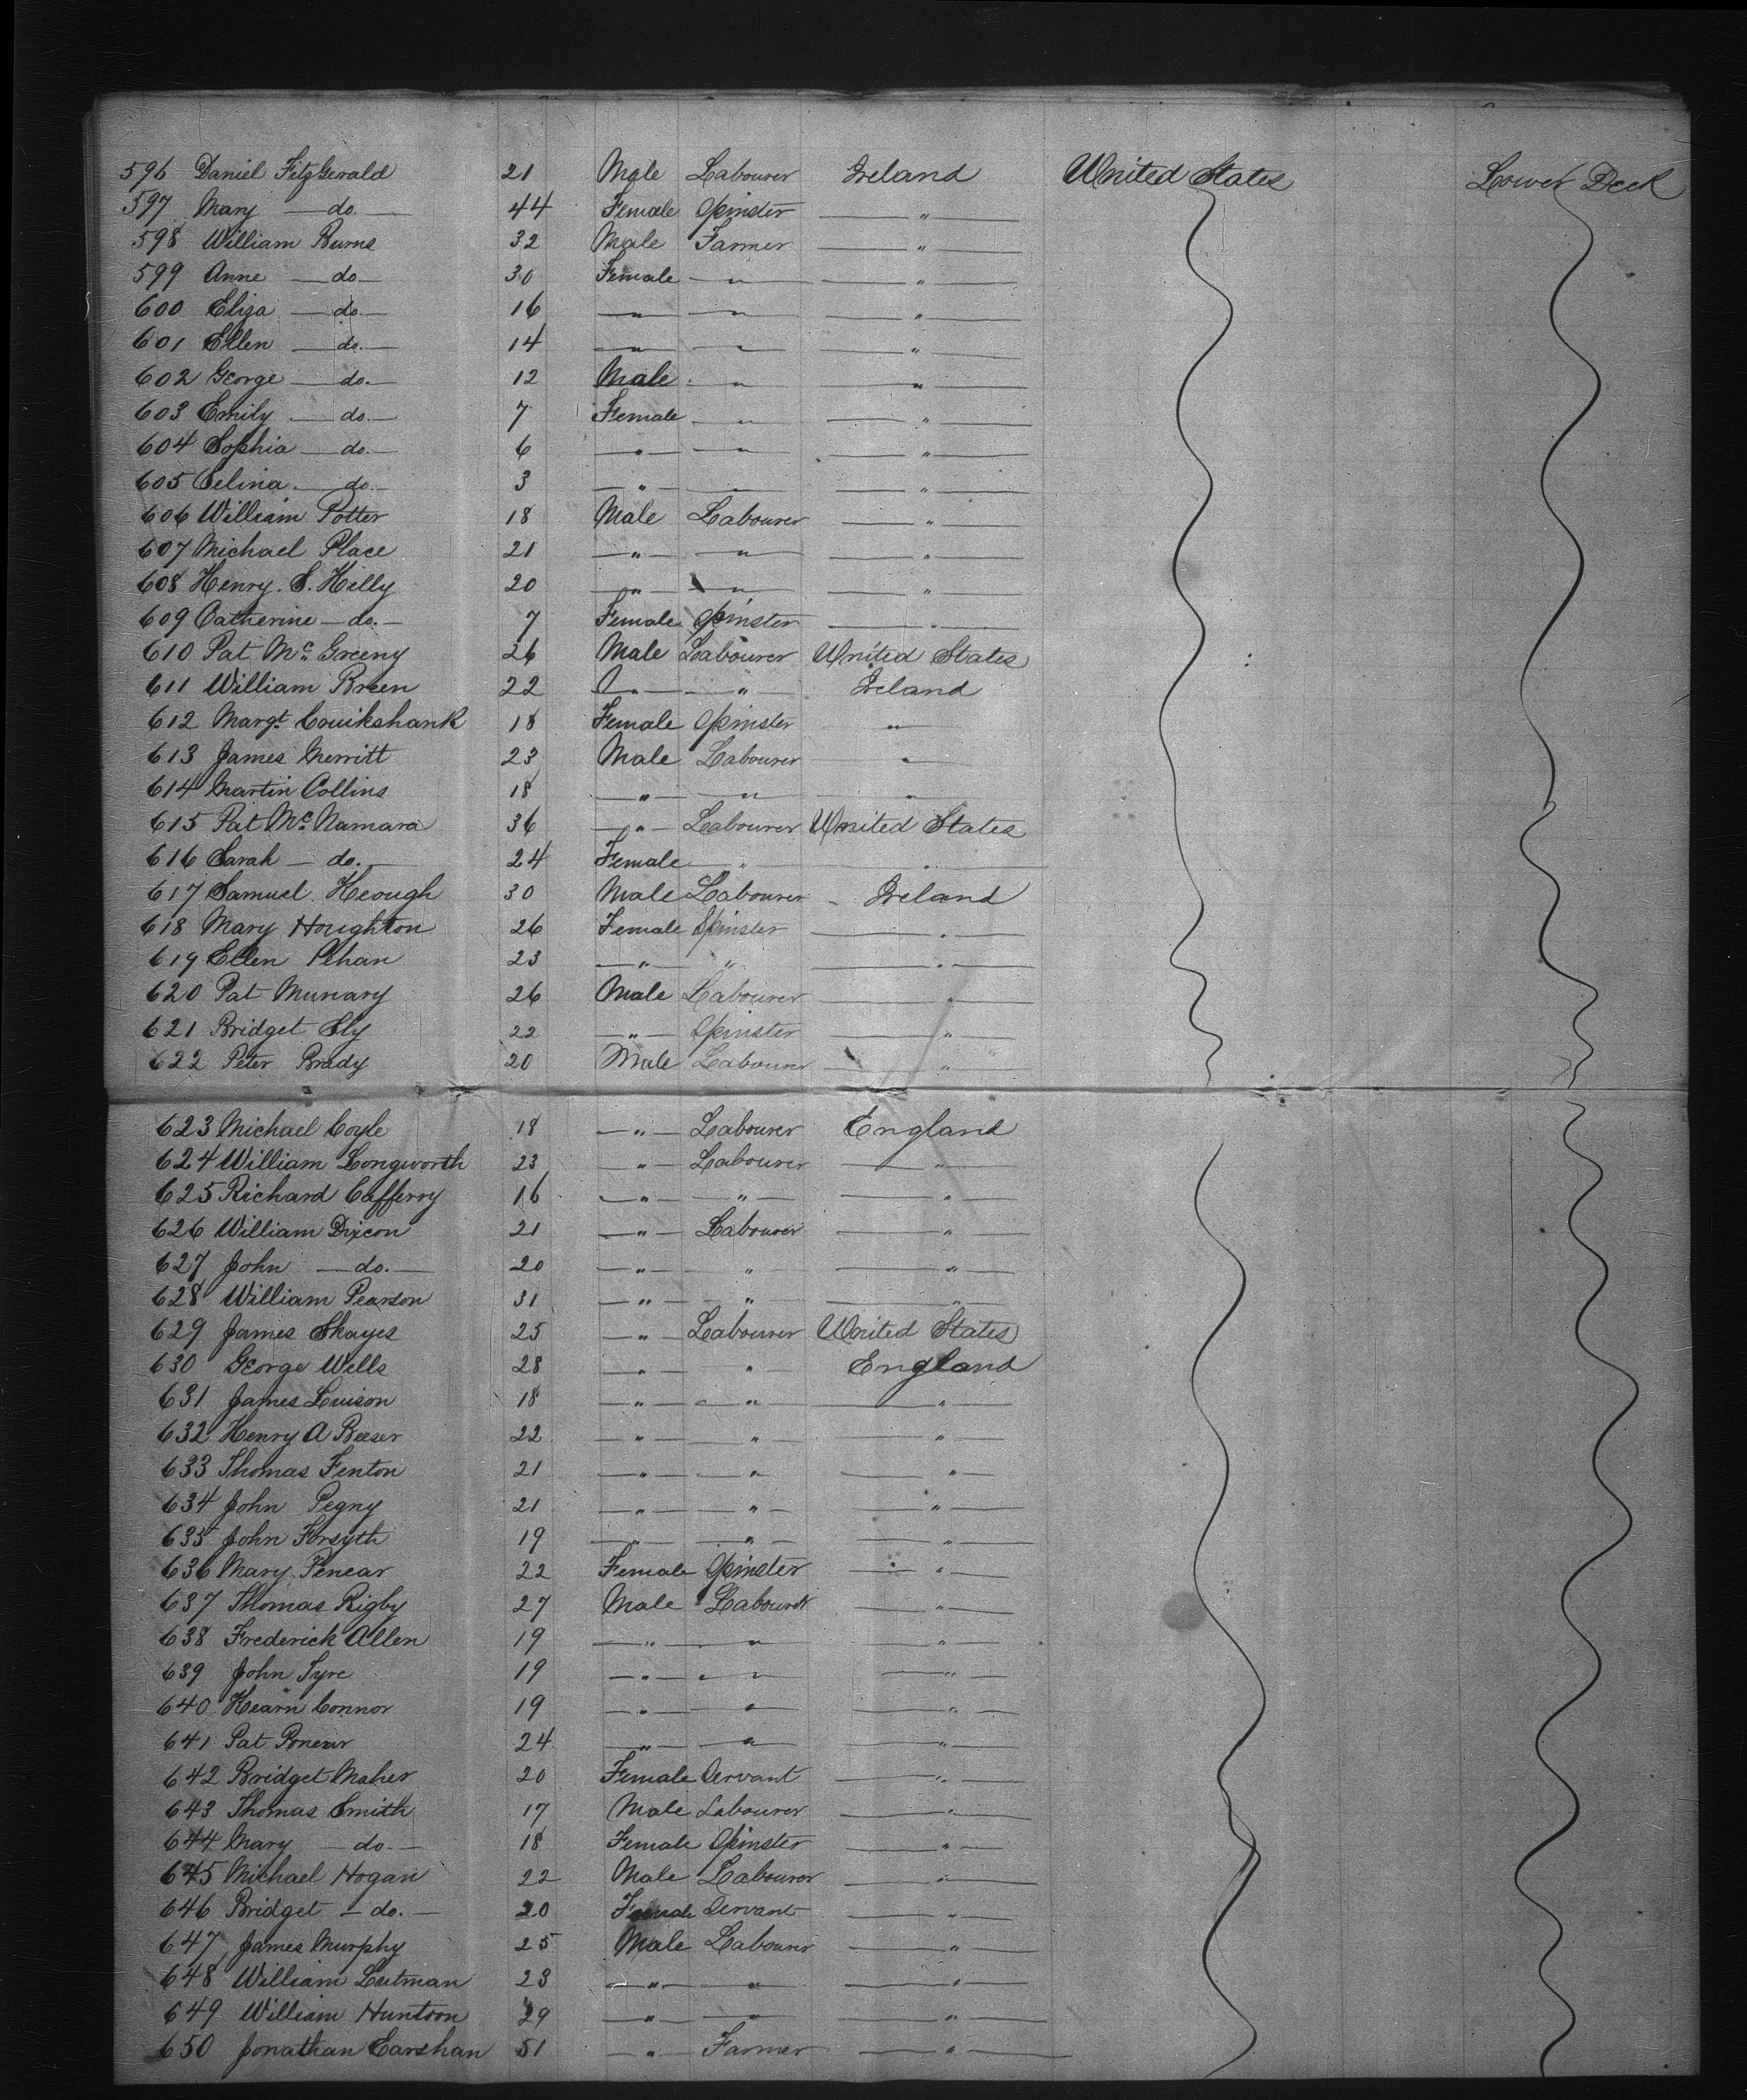 596 Daniel FitzGerald 21 Male Labourer Ireland United States Lower Deck
597 Mary — do. — 44 Female Spinster — " —
598 William Burns 32 Male Farmer — " —
599 Anne — do — 30 Female — " — — " —
600 Eliza — do. — 16 — " — — " — — " —
601 Ellen — do. — 14 — " — — " — — " —
602 George — do. — 12 Male — " — — " —
603 Emily — do. — 7 Female — " — — " —
604 Sophia — do. — 6 — " — — " — — " —
605 Selina — do. — 3 — " — — " — — " —
606 William Potter 18 Male Labourer — " —
607 Michael Place 21 — " — — " — — " —
608 Henry. S. Hilly 20 — " — — " — — " —
609 Catherine — do. — 7 Female Spinster — " —
610 Pat Mc Greeny 26 Male Labourer United States
611 William Breen 22 — " — — " — Ireland
612 Margt. Couikshank 18 Female Spinster — " —
613 James Merritt 23 Male Labourer — " —
614 Martin Collins 18 — " — — " — — " —
615 Pat Mc Namara 36 — " — Labourer United States
616 Sarah — do. — 24 Female " — " —
617 Samuel Keough 30 Male Labourer Ireland
618 Mary Houghton 26 Female Spinster — " —
619 Ellen 23 — " — " — " —
620 Pat Munary 26 Male Labourer — " —
621 Bridget Sly 22 — " — Spinster — " —
622 Peter Brady 20 Male Labourer — " —
623 Michael Coyle 18 — " — Labourer England
624 William Longworth 23 — " — Labourer — " —
625 Richard Cafferry 16 — " — — " — — " —
626 William Dixon 21 — " — Labourer — " —
627 John — do. — 20 — " — " — " —
628 William Pearson 31 — " — " — " —
629 James Shayes 25 — " — Labourer United States
630 George Wells 28 — " — " England
631 James Luison 18 — " — — " — — " —
632 Henry A Beeser 22 — " — — " — — " —
633 Thomas Fenton 21 — " — — " — — " —
634 John Pegny 21 — " — — " — — " —
635 John Forsyth 19 — " — — " — — " —
636 Mary Penear 22 Female Spinster — " —
637 Thomas Rigby 27 Male Labourer — " —
638 Frederick Allen 19 — " — — " — — " —
639 John Tyre 19 — " — — " — — " —
640 Hearn Connor 19 — " — — " — — " —
641 Pat 24 — " — — " — — " —
642 Bridget Maher 20 Female Servant — " —
643 Thomas Smith 17 Male Labourer — " —
644 Mary — do. — 18 Female Spinster — " —
645 Michael Hogan 22 Male Labourer — " —
646 Bridget — do. — 20 Female Servant — " —
647 James Murphy 25 Male Labourer — " —
648 William Lutman 23 — " — — " — — " —
649 William Huntoon 29 — " — — " — — " —
650 Jonathan Earshan 51 — " — Farmer — " —